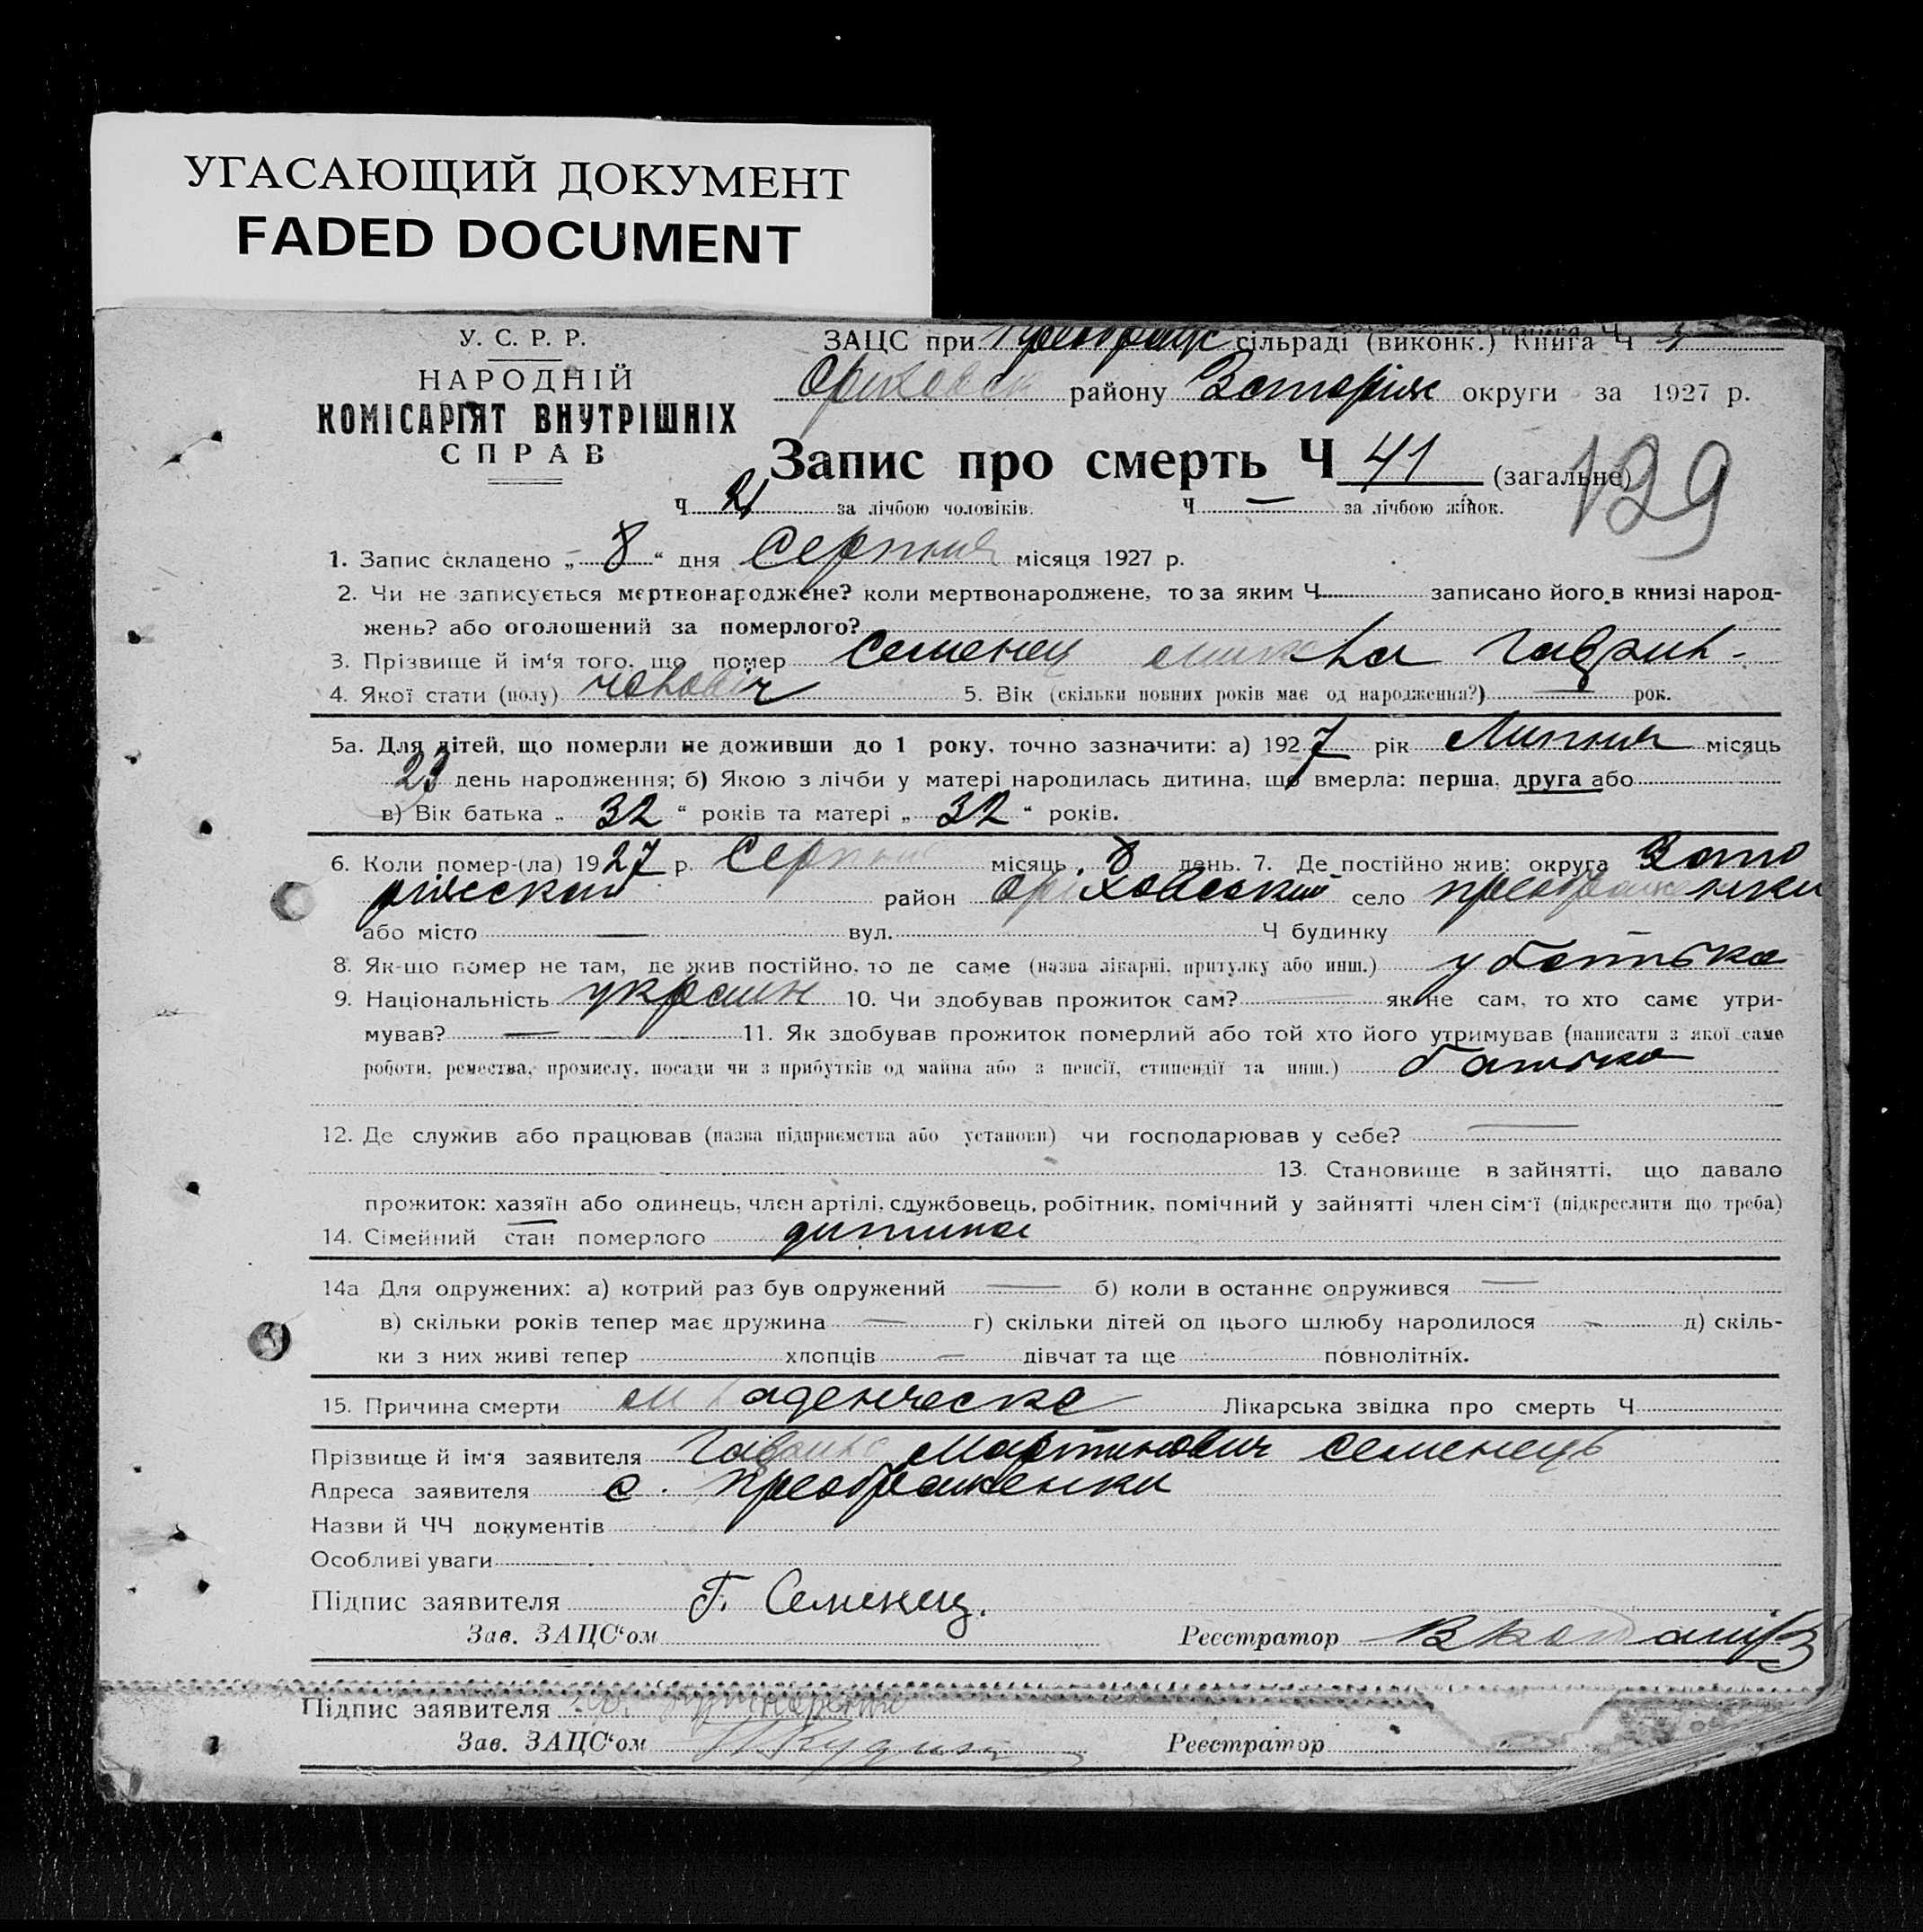 УГАСАЮЩИЙ ДОКУМЕНТ
FADED DOCUMENT
У. С. Р. Р.
НАРОДНІЙ
КОМІСАРІЯТ ВНУТРІШНІХ
СПРАВ
ЗАЦС при Преображ сільраді (виконк.) Книга Ч
Оріховск району Запоріж округи за 1927 р.
Запис про смерть Ч 41 (загальне) 129
Ч 21 за лічбою чоловіків. Ч — за лічбою жінок.
1. Запис складено „ 8 “ дня Серпня місяця 1927 р.
2. Чи не записується мертвонароджене? коли мертвонароджене, то за яким Ч. записано його в книзі народ-
жень? або оголошений за померлого?
3. Прізвище й ім‘я того, що помер Семенец Гаврил.
4. Якої стати (полу) чоловіч 5. Вік (скільки повних років має од народження?) — рок.
5а. Для дітей, що померли не доживши до 1 року, точно зазначити: а) 1927 рік Липня місяць
23 день народження; б) Якою з лічби у матері народилась дитина, що вмерла: перша, друга або
в) Вік батька „ 32 “ років та матері „ 32 “ років.
6. Коли помер-(ла) 1927 р. Серпня місяць 8 день. 7. Де постійно жив: округа Запо
ріжский район Оріховський село Преображенки
або місто — вул. Ч будинку
8. Як-що помер не там, де жив постійно, то де саме (назва лікарні, притулку або инш.) у батька
9. Національність україн 10. Чи здобував прожиток сам? — як не сам, то хто саме утри-
мував? — 11. Як здобував прожиток померлий або той хто його утримував (написати з якої саме
роботи, ремества, промислу, посади чи з прибутків од майна або з пенсії, стипендії та инш.) батька
12. Де служив або працював (назва підприємства або установи) чи господарював у себе? —
13. Становище в зайнятті, що давало
прожиток: хазяїн або одинець, член артілі, службовець, робітник, помічний у зайнятті член сім‘ї (підкреслити що треба)
14. Сімейний стан померлого дитина
14а Для одружених: а) котрий раз був одружений — б) коли в останнє одружився —
в) скільки років тепер має дружина — г) скільки дітей од цього шлюбу народилося — д) скіль-
ки з них живі тепер хлопців — дівчат та ще повнолітніх.
15. Причина смерти младенческа Лікарська звідка про смерть Ч
Прізвище й ім‘я заявителя Мартинович Семенець
Адреса заявителя с. Преображенки
Назви й ЧЧ документів
Особливі уваги
Підпис заявителя Г. Семенец.
Зав. ЗАЦС‘ом Реєстратор
Підпис заявителя
Зав. ЗАЦС‘ом Реєстратор